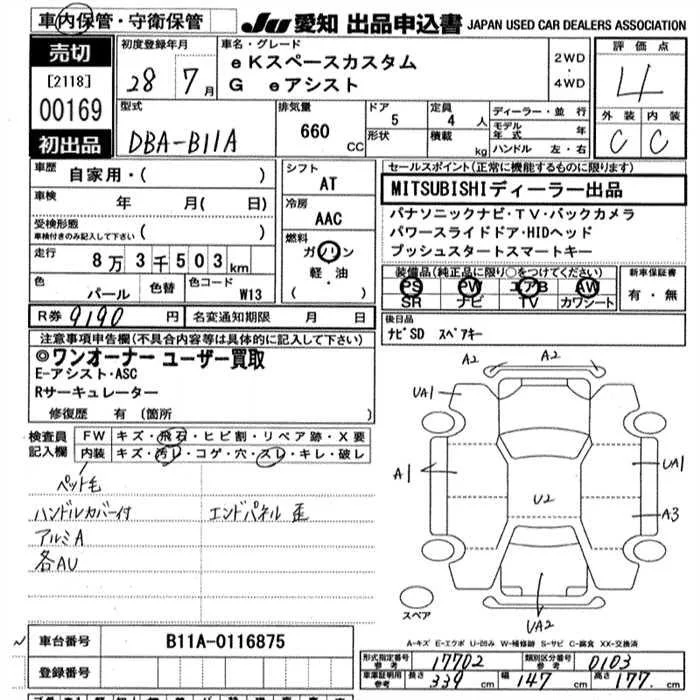 車内保管・守衛保管
JU 愛知 出品申込書 JAPAN USED CAR DEALERS ASSOCIATION
売切
[2118]
00169
初出品
初度登録年月
28 7月
車名・グレード
eKスペースカスタム
G eアシスト
2WD
・
4WD
評価点
4
外装 内装
C C
型式
DBA-B11A
排気量
660 CC
ドア
5
形状
定員
4 人
積載 kg
ディーラー・並行
モデル年式 年
ハンドル 左・右
車歴
自家用・( )
車検
年 月( 日)
受検形態
車検付きのみ記入して下さい ( )
走行
8万3千503km
色
パール
色替
色コード
W13
シフト
AT
冷房
AAC
燃料
ガソリン
軽・油
( )
セールスポイント(正常に機能するものに限ります)
MITSUBISHIディーラー出品
パナソニックナビ・TV・バックカメラ
パワースライドドア・HIDヘッド
プッシュスタートスマートキー
装備品(純正品に限り○をつけてください)
PS PW エアB AW
SR ナビ TV カワシート
新車保証書
有・無
R券 9190 円
名変通知期限 月 日
後日品
ナビSD スペアキー
注意事項申告欄(不具合内容等は具体的に記入して下さい)
◎ワンオーナー ユーザー買取
E-アシスト・ASC
Rサーキュレーター
修復歴 有(箇所 )
検査員
記入欄
FW キズ・飛石・ヒビ割・リペア跡・X要
内装 キズ・汚レ・コゲ・穴・スレ・キレ・破レ
ペット毛
ハンドルカバー付 エンドパネル歪
アルミA
各AU
A2 A2
UA1
A1
UA1
U2
A3
UA2
スペア
A-キズ E-エクボ U-凹み W-補修跡 S-サビ C-腐食 XX-交換済
車台番号 B11A-0116875
登録番号
形式指定番号 参考 17702
類別区分番号 参考 0103
車庫証明用 参考 長さ 339 cm 幅 147 cm 高さ 177. cm